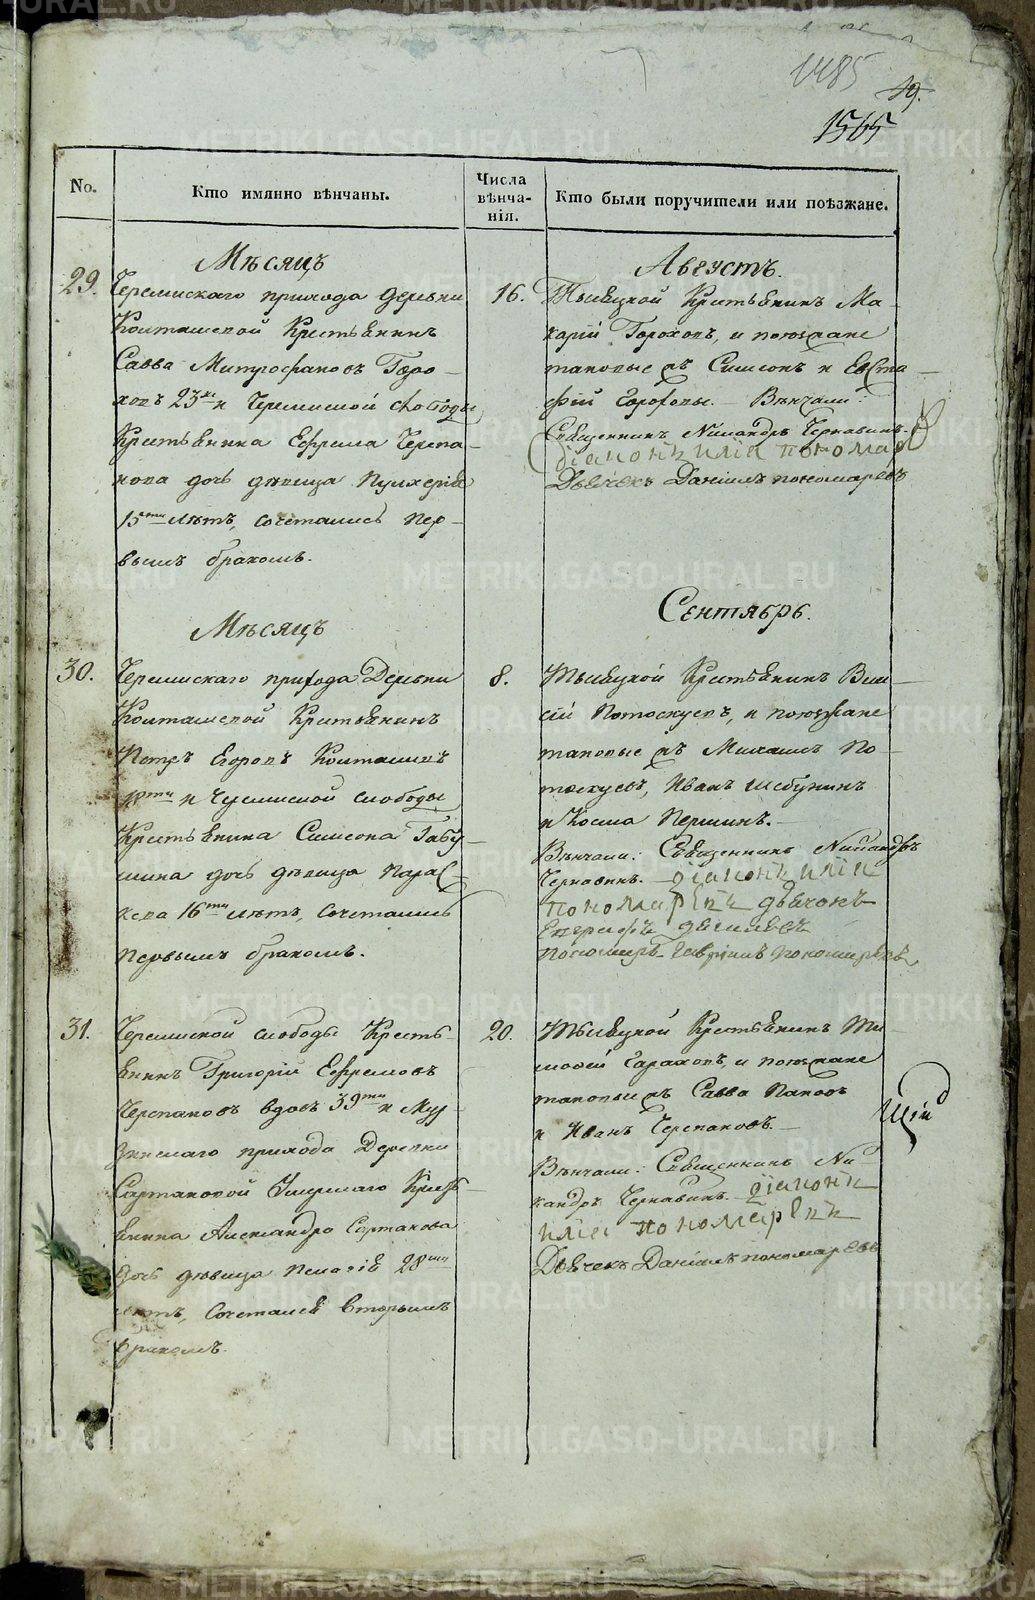 1485
19.
1565
No.
Кто имянно вѣнчаны.
Числа вѣнча-
нія.
Кто были поручители или поѣзжане.
Мѣсяцъ
Августъ.
29.
Черемискаго прихода деревни
Колташской Крестьянинъ
Савва Митрофановъ Горо-
ховъ 23хъ и Черемиской слободы
Крестьянина Ефрема Черепа-
нова дочь дѣвица Пулхерія
15ти лѣтъ, сочетались пер-
вымъ бракомъ.
16.
Тысяцкой Крестьянинъ Ма-
карій Гороховъ, и поѣзжане
таковые жъ Симеонъ и Евста-
фій Гороховы. Вѣнчали:
Священникъ Никандръ Чернавинъ
діаконъ илія пономарев
Дьячекъ Даніилъ пономаревъ
Мѣсяцъ
Сентябрь.
30.
Черемискаго прихода Деревни
Колташской Крестьянинъ
Петръ Егоровъ Колташевъ
18ти и Черемиской слободы
Крестьянина Симеона Габу-
шина дочь дѣвица Парас-
кева 16ти лѣтъ, сочетались
первымъ бракомъ.
8.
Тысяцкой Крестьянинъ
Потоскуевъ, и поѣзжане
таковые жъ Михаилъ По-
тоскуевъ, Иванъ Шебунинъ
и Косма Першинъ.
Вѣнчали: Священникъ Никандръ
Чернавинъ. діаконъ илія
пономаревъ дьячокъ
пономарь Гавриилъ пономаревъ
31.
Черемиской слободы Кресть-
янинъ Григорій Ефремовъ
Черепановъ вдовъ 39ти и Мур-
зинскаго прихода Деревни
Сартаковой Умершаго Кресть-
янина Александра Сартакова
дочь дѣвица Пелагія 28ми
лѣтъ, сочетались вторымъ
бракомъ.
20.
Тысяцкой Крестьянинъ Ти-
мофей Гараховъ, и поѣзжане
таковые жъ Савва Пановъ
и Иванъ Черепановъ.
Вѣнчали: Священникъ Ни-
кандръ Чернавинъ діаконъ
илія пономаревъ
Дьячекъ Даніилъ пономаревъ
METRIKI.GASO-URAL.RU